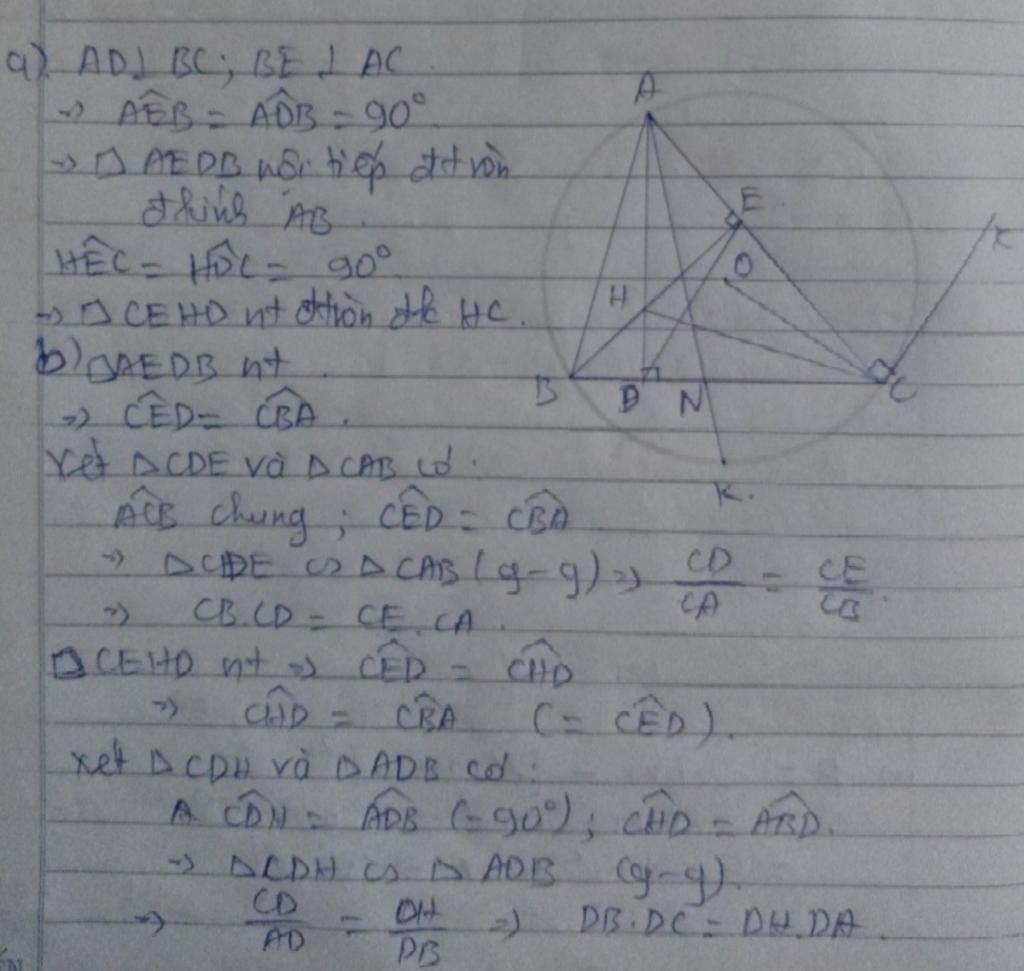 a) AD ⊥ BC; BE ⊥ AC.
=> AÊB = AD̂B = 90°
=> □ AEDB nội tiếp đtròn
đkính AB.
HÊC = HD̂C = 90°
=> □ CEHD nt đtròn đk HC.
b) □AEDB nt
=> CÊD = CB̂A.
Xét ΔCDE và ΔCAB có:
AĈB chung; CÊD = CB̂A
=> ΔCDE ∽ ΔCAB (g-g) => CD/CA = CE/CB.
=> CB.CD = CE.CA.
□CEHD nt => CÊD = CĤD
=> CĤD = CB̂A (= CÊD).
Xét ΔCDH và ΔADB có:
CD̂H = AD̂B (= 90°); CĤD = AB̂D.
=> ΔCDH ∽ ΔADB (g-g)
=> CD/AD = DH/DB => DB.DC = DH.DA.
A
E
O
x
H
B
D
N
C
K.